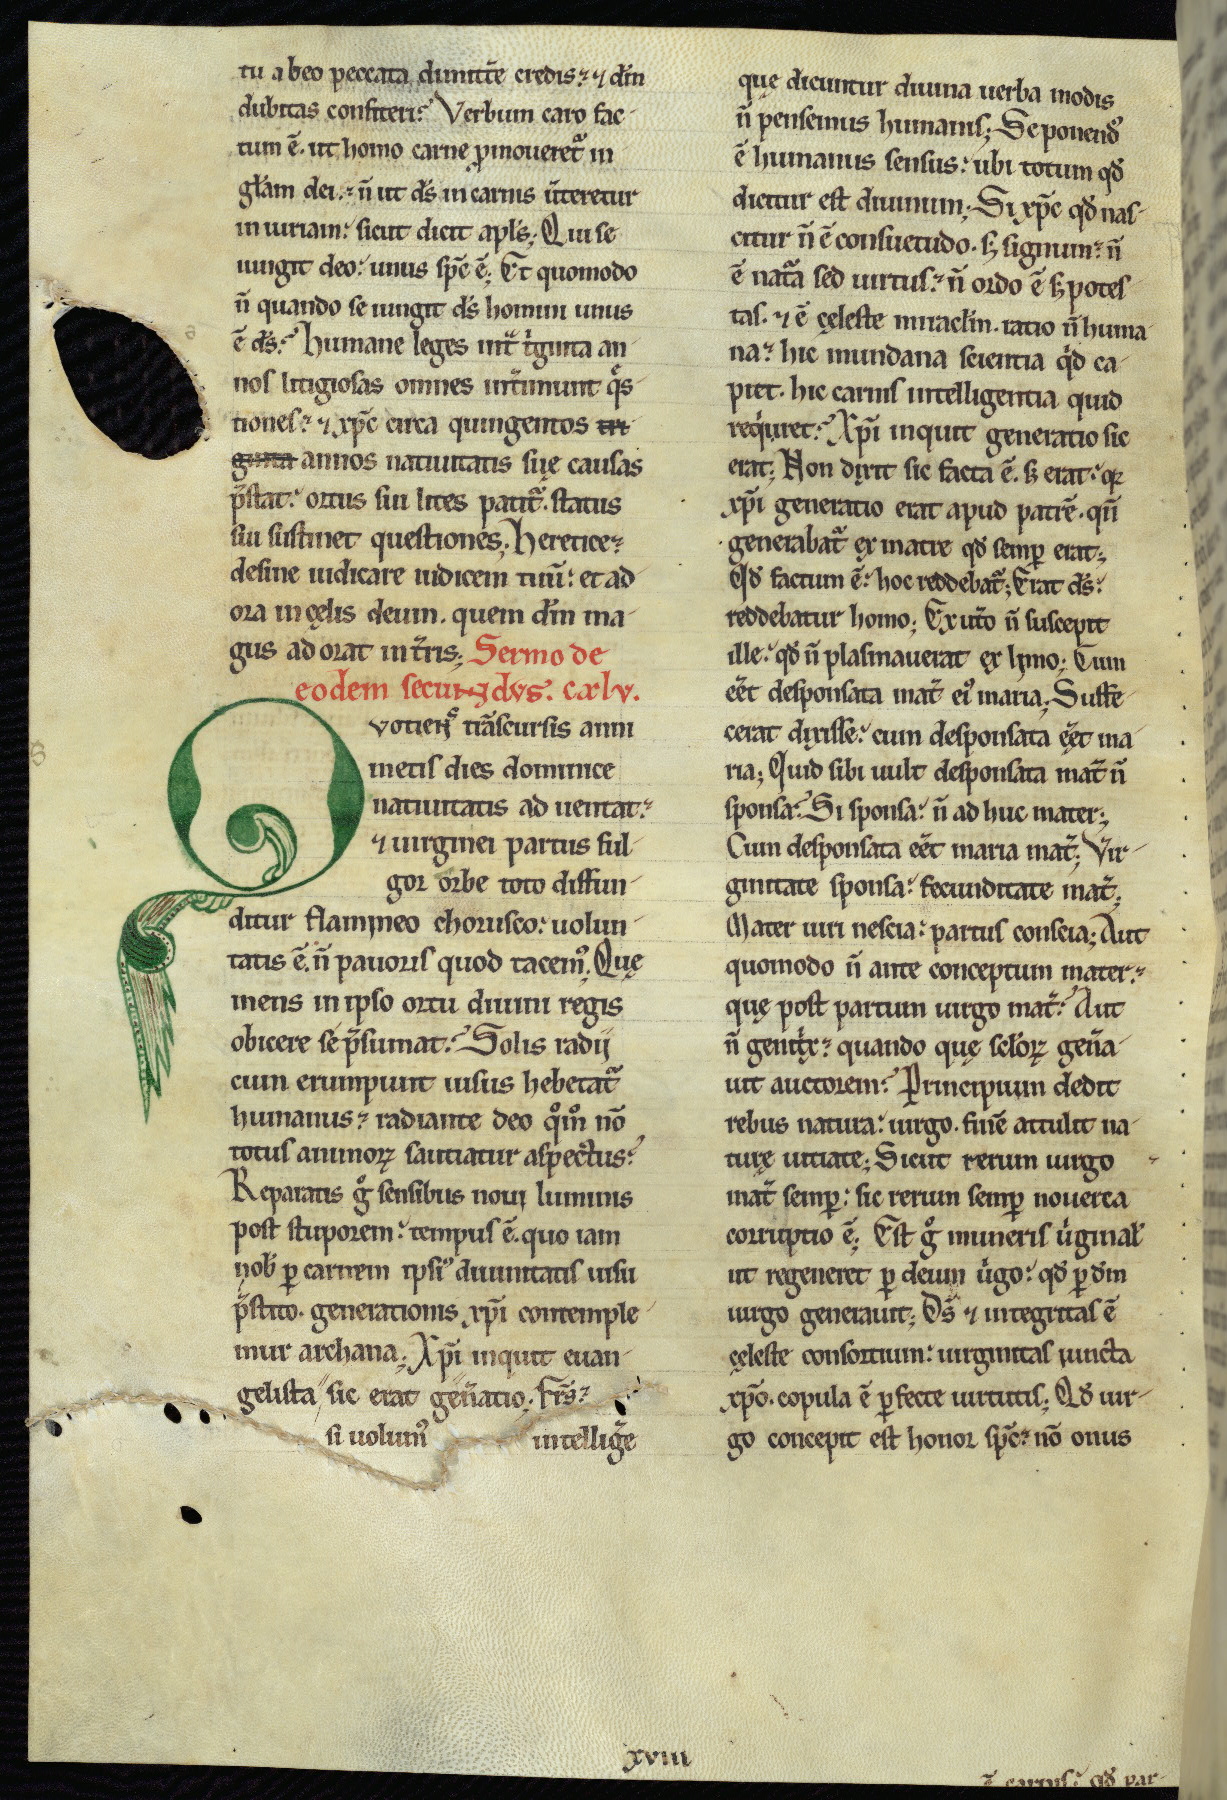 tu abeo peccata dimitt̄e credis? ⁊ dn̄m
dubitas confiteri? Verbum caro fac-
tum ē. ut homo carne ꝓmoueret᷑ in
gl̄am dei. n̄ ut ds̄ in carnis ūteretur
iniuriam: sicut dicit apl̄s; Qui se
iungit deo: unus sp̄c ē; Et quomodo
n̄ quando se iungit ds̄ homini unus
ē ds̄? Humane leges int̄ t̍ginta an-
nos litigiosas omnes int̄imunt q̄s-
tiones? ⁊ xp̄c circa quingentos tri-
ginta annos natiuitatis suę causas
p̄stat? ortus sui lites patit᷑. status
sui sustinet questiones; Heretice?
desine iudicare iudicem tuū: et ad
ora in cęlis deum. quem dn̄m ma-
gus adorat in t̄ris; Sermo de
eodem secundus. cxlv.
Qvotiens trāscursis anni
metis dies dominice
natiuitatis ad uentat?
⁊ uirginei partus ful-
gor orbe toto diffun-
ditur flammeo chorusco: uolun-
tatis ē. n̄ pauoris quod tacemꝰ. Quę
mens in ipso ortu diuini regis
obicere se p̄sumat? Solis radij
cum erumpunt uisus hebetat᷑
humanus? radiante deo qͦm̊ nō
totus animoꝝ sautiatur aspectus?
Reparatis gͦ sensibus noui luminis
post stuporem: tempus ē. quo iam
nob̄ ꝑ carnem ipsiꝰ diuinitatis uisu
p̄stito. generationis xp̄i contemple-
mur archana; Xp̄i inquit euan-
gelista sic erat gen̄atio; Frs̄?
si uolumꝰ intelliḡe
quę dicuntur diuina uerba modis
n̄ pensemus humanis; Seponendꝰ
ē humanus sensus: ubi totum qd̄
dicitur est diuinum; Si xp̄c qd̄ nas-
citur n̄ ē consuetudo. s; signum? n̄
ē nat᷑a sed uirtus? n̄ ordo ē s; potes-
tas. ⁊ ē cęleste miraclm̄. ratio n̄ huma-
na? hic mundana scientia qͥd ca-
piet. hic carnis intelligentia quid
reqͥret? Xp̄i inquit generatio sic
erat; Non dixit sic facta ē. s; erat: qꝛ
xp̄i generatio erat apud patrē. qn̄
generabat᷑ ex matre qd̄ semꝑ erat;
Qd̄ factum ē: hoc reddebat᷑; Erat ds̄:
reddebatur homo; Ex ut̄o n̄ suscepit
ille: qd̄ n̄ plasmauerat ex limo; Cum
eēt desponsata mat̄ eiꝰ maria; Suffe-
cerat dixisse? cum desponsata eēt ma
ria; Quid sibi uult desponsata mat̄ n̄
sponsa? Si sponsa: n̄ ad huc mater;
Cum desponsata eēt maria mat̄; Vir-
ginitate sponsa: fecunditate mat̄;
Mater uiri nescia: partus conscia; Aut
quomodo n̄ ante conceptum mater?
quę post partum uirgo mat̄? Aut
n̄ genitͥx? quando quę sclōꝝ gen̄a-
uit auctorem? Principium dedit
rebus natura: uirgo. finē attulit na-
turę uitiate; Sicut rerum uirgo
mat̄ semꝑ: sic rerum semꝑ nouerca
corruptio ē; Est gͦ muneris uͥginal̄
ut regeneret ꝑ deum uͥgo: qd̄ ꝑ dm̄
uirgo generauit; Ds̄ ⁊ integritas ē
cęleste consortium: uirginitas iuncta
xp̄o. copula ē ꝑfecte uirtutis; Qd̄ uir-
go concepit est honor sp̄c? nō onus
xviii